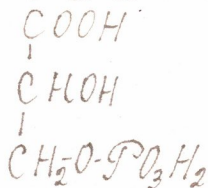 COOH
CHOH
CH₂-O-PO₃H₂